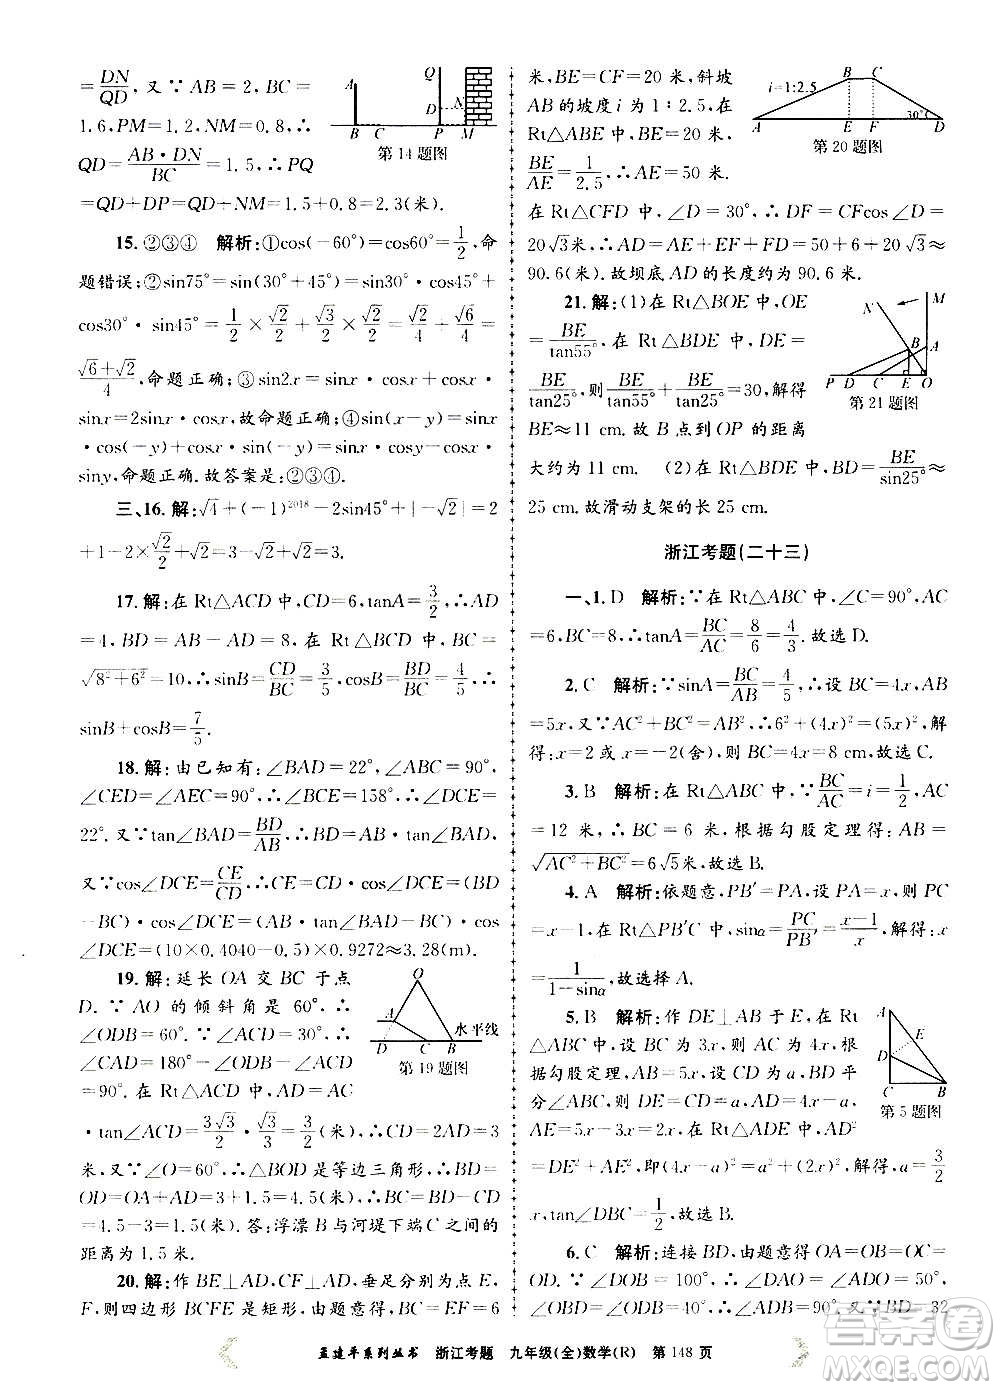 =DN/QD, 又∵AB=2, BC=
1.6, PM=1.2, NM=0.8, ∴
QD=AB·DN/BC=1.5, ∴PQ
=QD+DP=QD+NM=1.5+0.8=2.3(米).
Q
A
D
N
B C P M
第14题图
15. ②③④ 解析:①cos(-60°)=cos60°=1/2, 命
题错误;②sin75°=sin(30°+45°)=sin30°·cos45°+
cos30°·sin45°=1/2×√2/2+√3/2×√2/2=√2/4+√6/4=
(√6+√2)/4, 命题正确;③sin2x=sinx·cosx+cosx·
sinx=2sinx·cosx, 故命题正确;④sin(x-y)=sinx
·cos(-y)+cosx·sin(-y)=sinx·cosy-cosx·
siny, 命题正确. 故答案是:②③④.
三、16. 解:√4+(-1)²⁰¹⁸-2sin45°+|-√2|=2
+1-2×√2/2+√2=3-√2+√2=3.
17. 解:在Rt△ACD中, CD=6, tanA=3/2, ∴AD
=4, BD=AB-AD=8, 在Rt△BCD中, BC=
√(8²+6²)=10, ∴sinB=CD/BC=3/5, cosB=BD/BC=4/5, ∴
sinB+cosB=7/5.
18. 解:由已知有:∠BAD=22°, ∠ABC=90°,
∠CED=∠AEC=90°, ∴∠BCE=158°, ∴∠DCE=
22°. 又∵tan∠BAD=BD/AB, ∴BD=AB·tan∠BAD,
又∵cos∠DCE=CE/CD, ∴CE=CD·cos∠DCE=(BD
-BC)·cos∠DCE=(AB·tan∠BAD-BC)·cos
∠DCE=(10×0.4040-0.5)×0.9272≈3.28(m).
19. 解:延长OA交BC于点
D. ∵AO的倾斜角是60°, ∴
∠ODB=60°. ∵∠ACD=30°, ∴
∠CAD=180°-∠ODB-∠ACD
=90°. 在Rt△ACD中, AD=AC
·tan∠ACD=3√3/2·√3/3=3/2(米), ∴CD=2AD=3
米, 又∵∠O=60°, ∴△BOD是等边三角形, ∴BD=
OD=OA+AD=3+1.5=4.5(米), ∴BC=BD-CD
=4.5-3=1.5(米). 答:浮漂B与河堤下端C之间的
距离为1.5米.
O
A
水平线
D C B
第19题图
20. 解:作BE⊥AD, CF⊥AD, 垂足分别为点E,
F, 则四边形BCFE是矩形, 由题意得, BC=EF=6
米, BE=CF=20米, 斜坡
AB的坡度i为1:2.5, 在
Rt△ABE中, BE=20米, ∴
BE/AE=1/2.5, ∴AE=50米.
B C
i=1:2.5
30°
A E F D
第20题图
在Rt△CFD中, ∠D=30°, ∴DF=CFcos∠D=
20√3米, ∴AD=AE+EF+FD=50+6+20√3≈
90.6(米). 故坝底AD的长度约为90.6米.
21. 解:(1)在Rt△BOE中, OE
=BE/tan55°, 在Rt△BDE中, DE=
BE/tan25°, 则BE/tan55°+BE/tan25°=30, 解得
BE≈11 cm. 故B点到OP的距离
大约为11 cm. (2)在Rt△BDE中, BD=BE/sin25°≈
25 cm. 故滑动支架的长25 cm.
M
N
B A
P D C E O
第21题图
浙江考题(二十三)
一、1. D 解析:∵在Rt△ABC中, ∠C=90°, AC
=6, BC=8, ∴tanA=BC/AC=8/6=4/3. 故选D.
2. C 解析:∵sinA=BC/AB=4/5, ∴设BC=4x, AB
=5x, 又∵AC²+BC²=AB², ∴6²+(4x)²=(5x)², 解
得:x=2或x=-2(舍), 则BC=4x=8 cm, 故选C.
3. B 解析:在Rt△ABC中, ∵BC/AC=i=1/2, AC
=12米, ∴BC=6米, 根据勾股定理得:AB=
√(AC²+BC²)=6√5米, 故选B.
4. A 解析:依题意, PB′=PA, 设PA=x, 则PC
=x-1. 在Rt△PB′C中, sinα=PC/PB′=(x-1)/x, ∴x
=1/(1-sinα), 故选择A.
5. B 解析:作DE⊥AB于E, 在Rt
△ABC中, 设BC为3x, 则AC为4x,
根据勾股定理, AB=5x, 设CD为a, BD平
分∠ABC, 则DE=CD=a, AD=4x-a,
AE=5x-3x=2x, 在Rt△ADE中, AD²
=DE²+AE², 即(4x-a)²=a²+(2x)², 解得, a=3/2
x, tan∠DBC=1/2, 故选:B.
A
E
D
C B
第5题图
6. C 解析:连接BD, 由题意得OA=OB=OC=
OD. ∵∠BDO=100°, ∴∠DAO=∠ADO=50°,
∠OBD=∠ODB=40°, ∴∠ADB=90°. 又∵BD=32
孟建平系列丛书 浙江考题 九年级(全)数学(R) 第148页